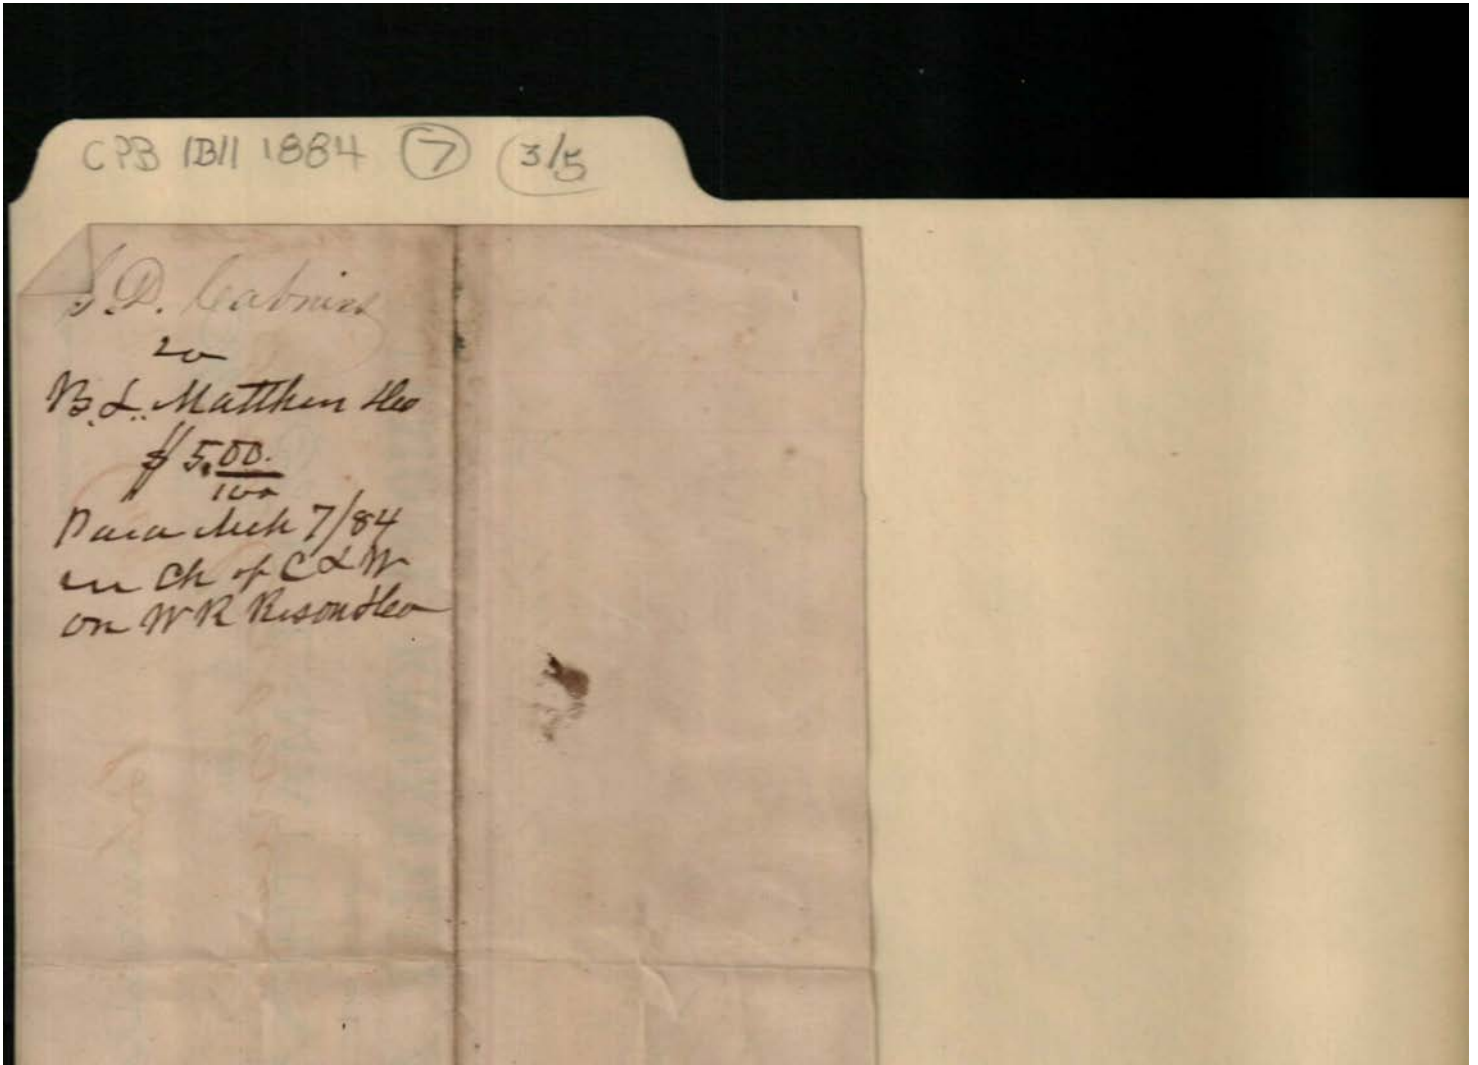 CPB 1B11 1884 7 3/5
S. D. Cabiniss
to
B. L. Matthews &co
$5.00/100
Paid Mch 7/84
in Ch of C & W
on W R Rison &co